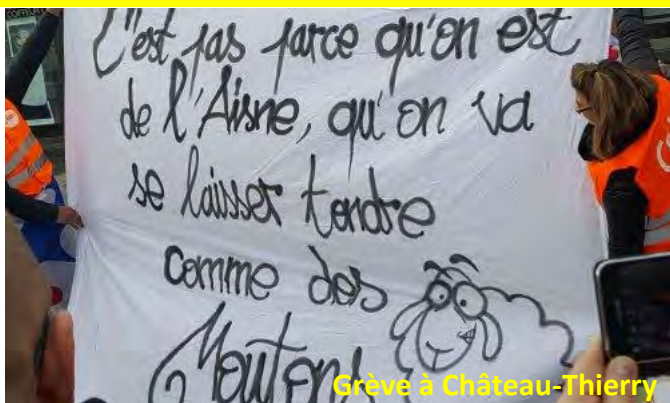 C'est pas parce qu'on est
de l'Aisne, qu'on va
se laisser tondre
comme des
Moutons
Grève à Château-Thierry